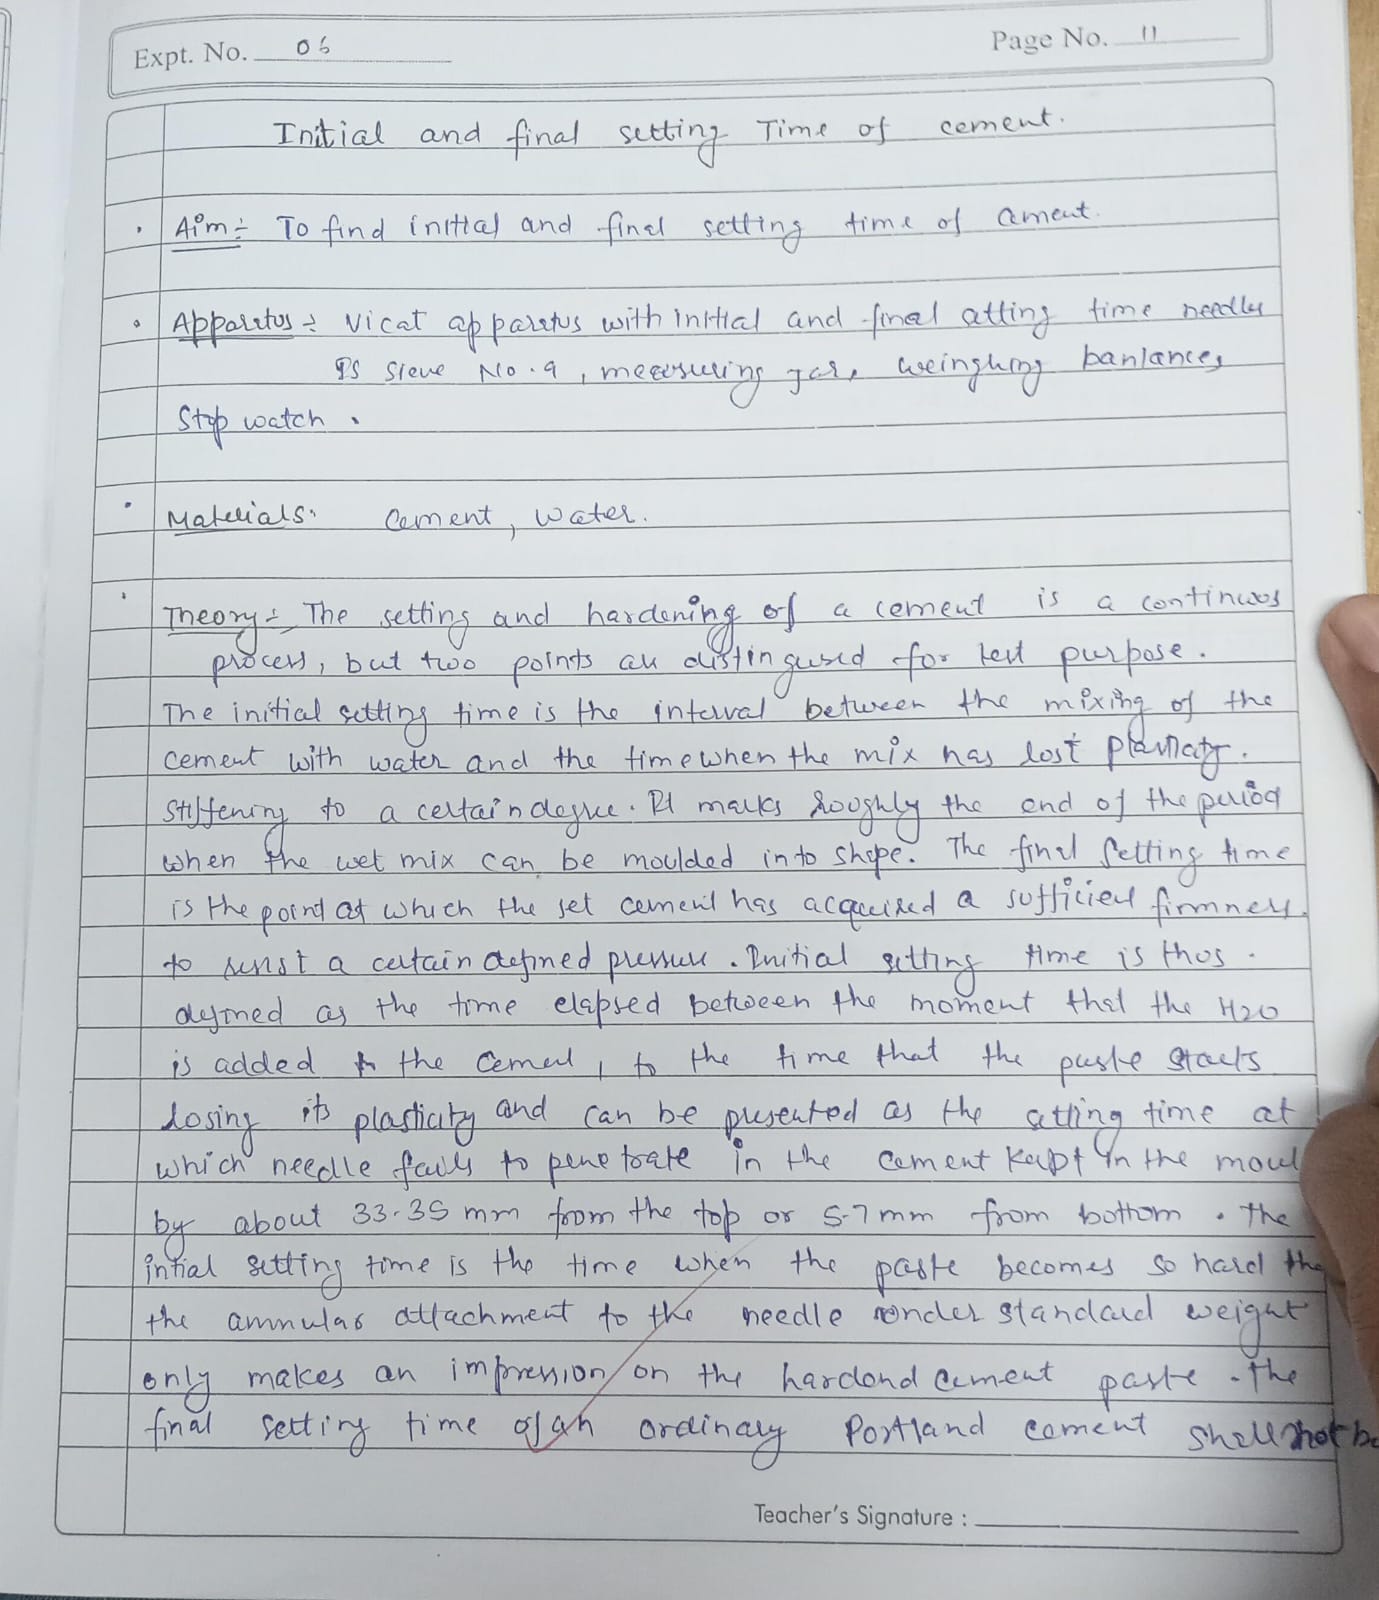 Expt. No. 06
Page No. 11
Initial and final setting Time of cement.
Aim:- To find initial and final setting time of cement.
Apparatus:- Vicat apparatus with initial and final setting time needles
IS Sieve No. 9, measuring jar, weinghing banlances,
Stop watch.
Materials: Cement, water.
Theory:- The setting and hardening of a cement is a continuos
process, but two points are distingused for test purpose.
The initial setting time is the interval between the mixing of the
cement with water and the time when the mix has lost plasticity.
Stiffening to a certain degree. It marks roughly the end of the period
when the wet mix can be moulded into shape. The final setting time
is the point at which the set cement has acquired a sufficient firmness
to resist a certain defined pressure. Initial setting time is thus.
defined as the time elapsed between the moment that the H2O
is added to the cement, to the time that the paste starts
losing its plasticity and can be presented as the setting time at
which needle fails to penetrate in the cement kept in the moul
by about 33-35 mm from the top or 5-7 mm from bottom. The
intial setting time is the time when the paste becomes so hard tha
the annular attachment to the needle under standard weight
only makes an impression on the hardend cement paste. The
final setting time of an ordinary Portland cement shall not be
Teacher's Signature :